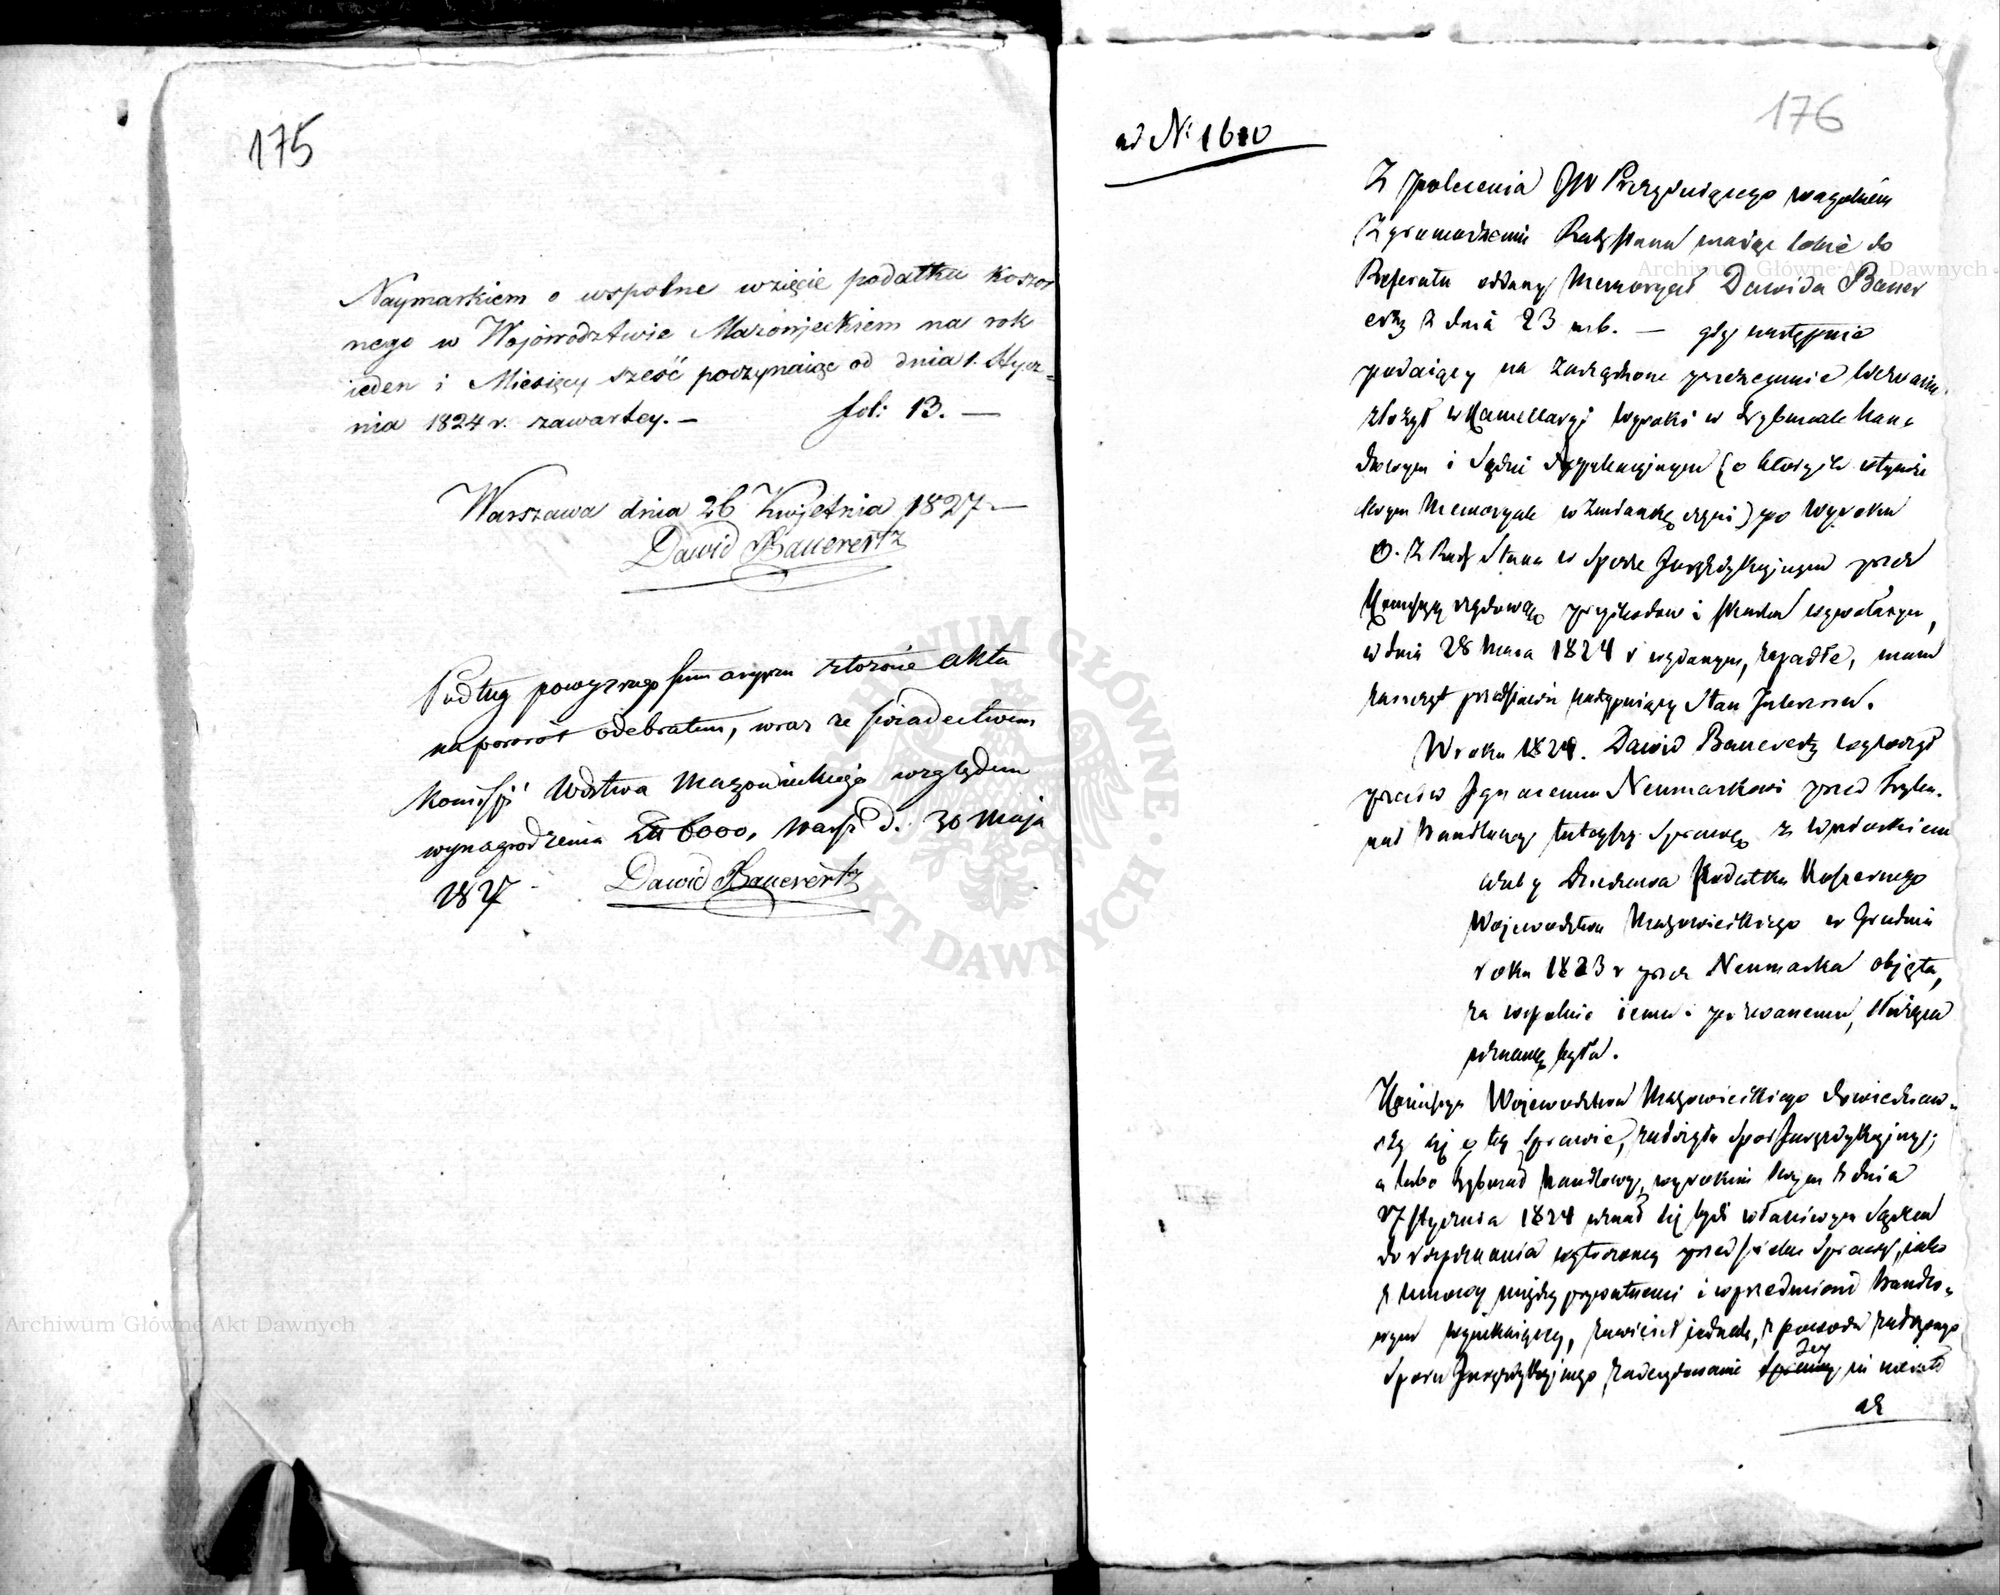 175
Naymarkiem o wspolne wzięcie podatku koszer
nego w Wojewodztwie Mazowieckiem na rok
ieden i Miesięcy sześć poczynaiąc od dnia 1. Stycz=
nia 1824 r. zawartey. — fol: 13. —
Warszawa dnia 26 Kwietnia 1827 —
Dawid Bauerertz
Podług powyższego summaryusza złożone akta
napowrót odebrałem, wraz ze świadectwem
Kommissyi Wdztwa Mazowieckiego względem
wynagrodzenia Zł 6000, Warsz d. 30 Maja
1827 Dawid Bauerertz
176
ad N: 1610
Z polecenia JW Prezyduiącego w ogólném
Zgromadzeniu Rady Stanu maiąc sobie do
Referatu oddany Memoryał Dawida Bauer
ertz z dnia 23 m.b. — gdy następnie
podaiący na
złożył w Kancellaryi wyroki w Trybunale Han
dlowym i Sądzie Appellacyinym (o których w tymże
swym Memoryale wzmiankę czyni) po Wyroku
O. Z Rady Stanu w Sporze Juryzdykcyjnym przez
Kommissyę rządową przychodów i skarbu wywołanym,
w dniu 28 Maia 1824 r wydanym, zapadłe, mam
zaszczyt przedstawić następuiący Stan Interessu.
W roku 1824. Dawid Bauerertz wytoczył
przeciw Ignacemu Neumarkowi przed Trybu.
nał Handlowy tuteyszy Sprawę z Wnioskiem
ażeby Dzierżawa Podatku Koszernego
Województwa Mazowieckiego w Grudniu
roku 1823 r przez Neumarka objęta,
za wspólnie iemu i pozwanemu, służącą
uznaną była.
Kommissya Województwa Mazowieckiego dowiedziaw=
szy się o tey Sprawie, zadzięła Spor Juryzdykcyjny;
a lubo Trybunał Handlowy, wyrokiem swym z dnia
27 Stycznia 1824 uznał się bydź właściwym Sądem
do rozpoznania wytoczoney przed siebie Sprawy, jako
z umowy między prywatnemi i w przedmiocie handlo=
wym wynikaiącey, zawiesił jednak, z powodu zadzętego
Sporu Juryzdykcyjnego, zadecydowanie Sprawy Jey nim nie
aż